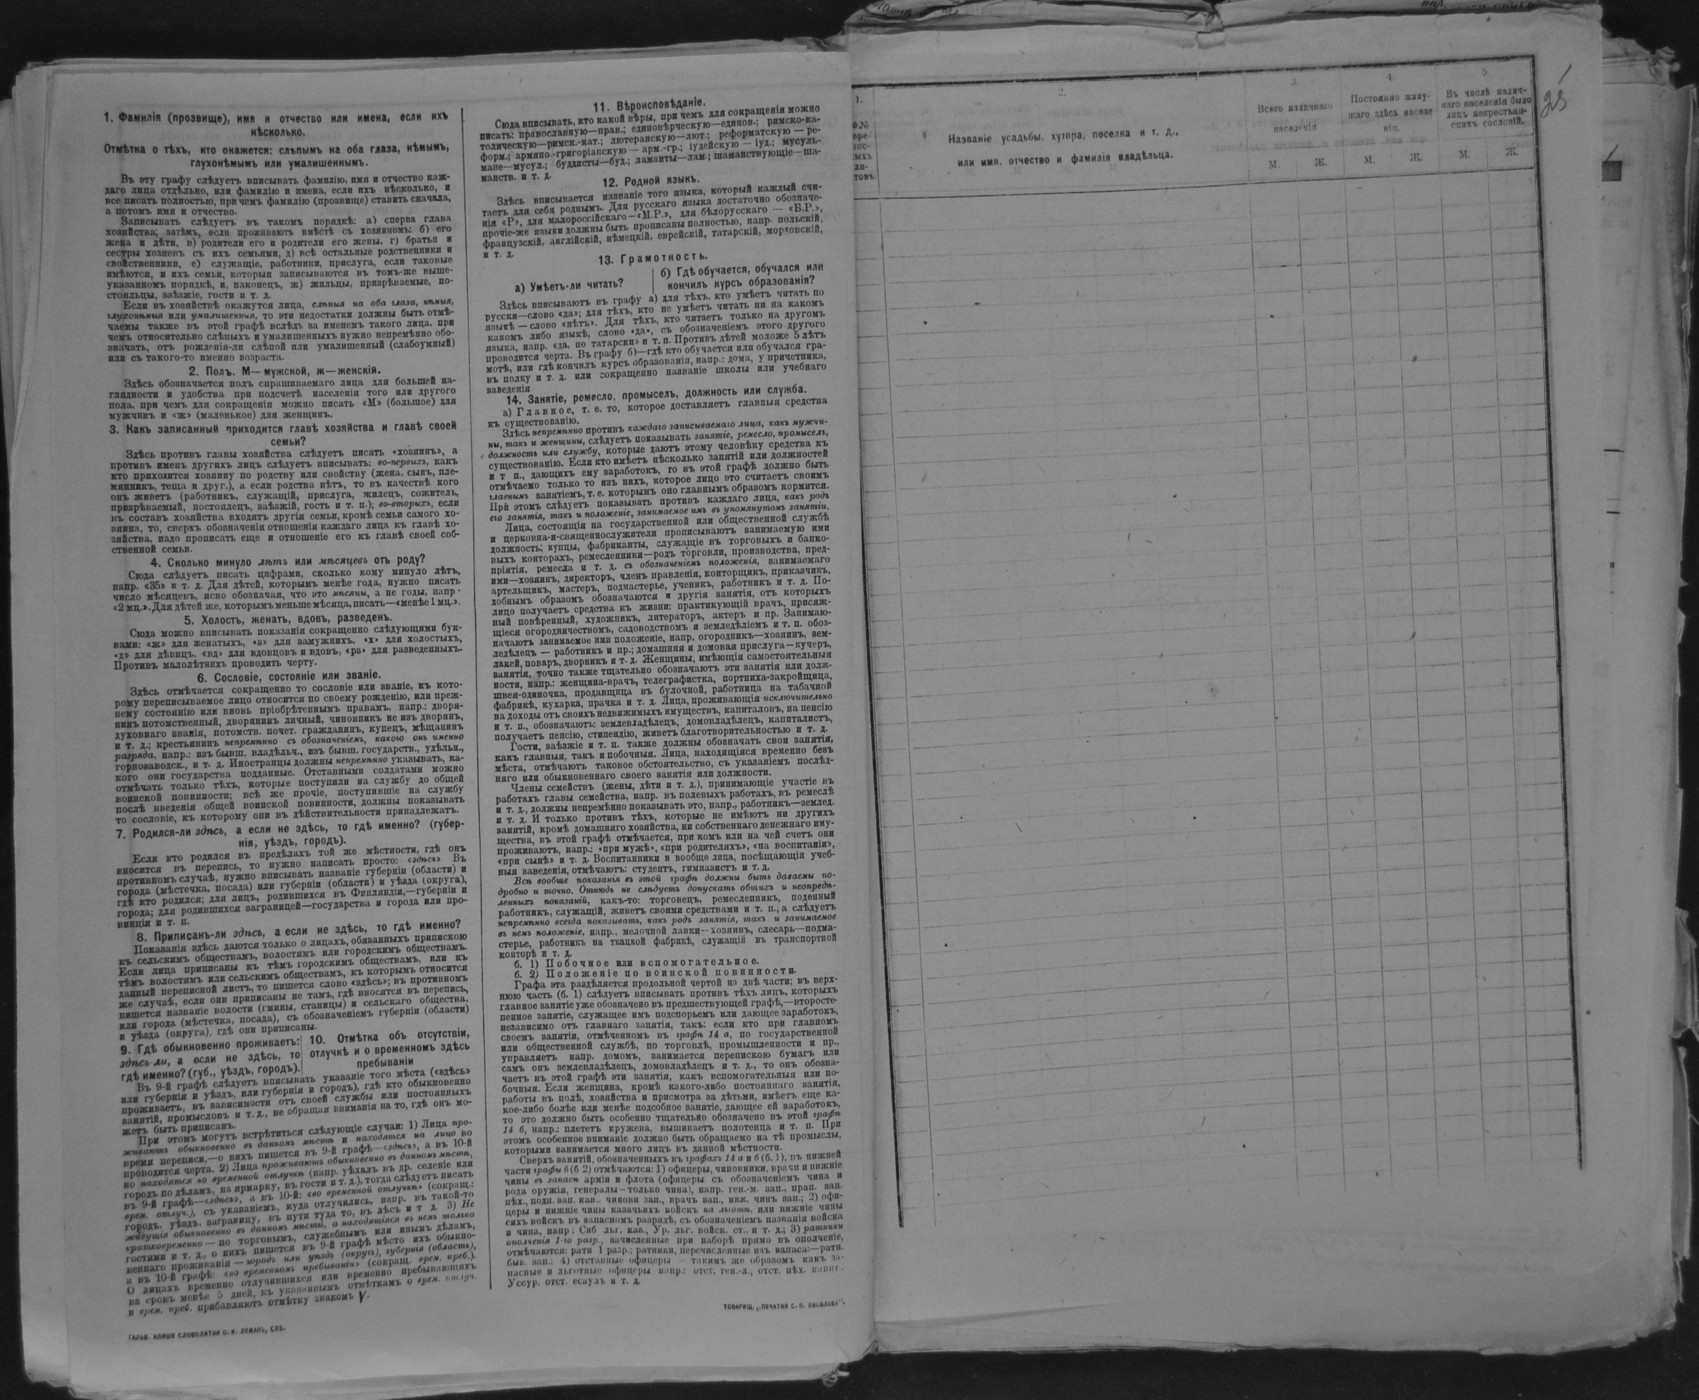 1. Фамилія (прозвище), имя и отчество или имена, если ихъ
нѣсколько.
Отмѣтка о тѣхъ, кто окажется: слѣпымъ на оба глаза, нѣмымъ,
глухонѣмымъ или умалишеннымъ.
Въ эту графу слѣдуетъ вписывать фамилію, имя и отчество каж-
даго лица отдѣльно, или фамилію и имена, если ихъ нѣсколько, и
все писать полностью, при чемъ фамилію (прозвище) ставить сначала,
а потомъ имя и отчество.
Записывать слѣдуетъ въ такомъ порядкѣ: а) сперва глава
хозяйства; затѣмъ, если проживаютъ вмѣстѣ съ хозяиномъ: б) его
жена и дѣти, в) родители его и родители его жены, г) братья и
сестры хозяевъ съ ихъ семьями, д) всѣ остальные родственники и
свойственники, е) служащіе, работники, прислуга, если таковые
имѣются, и ихъ семьи, которыя записываются въ томъ-же выше-
указанномъ порядкѣ, и, наконецъ, ж) жильцы, призрѣваемые, по-
стояльцы, заѣзжіе, гости и т. д.
Если въ хозяйствѣ окажутся лица, слѣпыя на оба глаза, нѣмыя,
глухонѣмыя или умалишенныя, то эти недостатки должны быть отмѣ-
чаемы также въ этой графѣ вслѣдъ за именемъ такого лица, при
чемъ относительно слѣпыхъ и умалишенныхъ нужно непремѣнно обо-
значать, отъ рожденія-ли слѣпой или умалишенный (слабоумный)
или съ такого-то именно возраста.
2. Полъ. М—мужской, ж—женскій.
Здѣсь обозначается полъ спрашиваемаго лица для большей на-
глядности и удобства при подсчетѣ населенія того или другого
пола, при чемъ для сокращенія можно писать «М» (большое) для
мужчинъ и «ж» (маленькое) для женщинъ.
3. Какъ записанный приходится главѣ хозяйства и главѣ своей
семьи?
Здѣсь противъ главы хозяйства слѣдуетъ писать «хозяинъ», а
противъ именъ другихъ лицъ слѣдуетъ вписывать: во-первыхъ, какъ
кто приходится хозяину по родству или свойству (жена, сынъ, пле-
мянникъ, теща и друг.), а если родства нѣтъ, то въ качествѣ кого
онъ живетъ (работникъ, служащій, прислуга, жилецъ, сожитель,
призрѣваемый, постоялецъ, заѣзжій, гость и т. п.); во-вторыхъ, если
въ составъ хозяйства входятъ другія семьи, кромѣ семьи самого хо-
зяина, то, сверхъ обозначенія отношенія каждаго лица къ главѣ хо-
зяйства, надо прописать еще и отношеніе его къ главѣ своей соб-
ственной семьи.
4. Сколько минуло лѣтъ или мѣсяцевъ отъ роду?
Сюда слѣдуетъ писать цифрами, сколько кому минуло лѣтъ,
напр. «35» и т. д. Для дѣтей, которымъ менѣе года, нужно писать
число мѣсяцевъ, ясно обозначая, что это мѣсяцы, а не годы, напр.
«2 мц.». Для дѣтей же, которымъ меньше мѣсяца, писать—«менѣе 1 мц.».
5. Холостъ, женатъ, вдовъ, разведенъ.
Сюда можно вписывать показанія сокращенно слѣдующими бук-
вами: «ж» для женатыхъ, «з» для замужнихъ, «х» для холостыхъ,
«д» для дѣвицъ, «вд» для вдовцовъ и вдовъ, «рв» для разведенныхъ.
Противъ малолѣтнихъ проводить черту.
6. Сословіе, состояніе или званіе.
Здѣсь отмѣчается сокращенно то сословіе или званіе, къ кото-
рому переписываемое лицо относится по своему рожденію, или преж-
нему состоянію или вновь пріобрѣтеннымъ правамъ, напр.: дворя-
нинъ потомственный, дворянинъ личный, чиновникъ не изъ дворянъ,
духовнаго званія, потомств. почет. гражданинъ, купецъ, мѣщанинъ
и т. д.; крестьянинъ непремѣнно съ обозначеніемъ, какого онъ именно
разряда, напр.: изъ бывш. владѣльч., изъ бывш. государств., удѣльн.,
горнозаводск., и т. д. Иностранцы должны непремѣнно указывать, ка-
кого они государства подданные. Отставными солдатами можно
отмѣчать только тѣхъ, которые поступили на службу до общей
воинской повинности; всѣ же прочіе, поступившіе на службу
послѣ введенія общей воинской повинности, должны показывать
то сословіе, къ которому они въ дѣйствительности принадлежатъ.
7. Родился-ли здѣсь, а если не здѣсь, то гдѣ именно? (губер-
нія, уѣздъ, городъ).
Если кто родился въ предѣлахъ той же мѣстности, гдѣ онъ
вносится въ перепись, то нужно написать просто: «здѣсь» Въ
противномъ случаѣ, нужно вписывать названіе губерніи (области) и
города (мѣстечка, посада) или губерніи (области) и уѣзда (округа),
гдѣ кто родился; для лицъ, родившихся въ Финляндіи,—губерніи и
города; для родившихся заграницей—государства и города или про-
винціи и т. п.
8. Приписанъ-ли здѣсь, а если не здѣсь, то гдѣ именно?
Показанія здѣсь даются только о лицахъ, обязанныхъ припискою
къ сельскимъ обществамъ, волостямъ или городскимъ обществамъ.
Если лица приписаны къ тѣмъ городскимъ обществамъ, или къ
тѣмъ волостямъ или сельскимъ обществамъ, къ которымъ относится
данный переписной листъ, то пишется слово «здѣсь»; въ противномъ
же случаѣ, если они приписаны не тамъ, гдѣ вносятся въ перепись,
пишется названіе волости (гмины, станицы) и сельскаго общества,
или города (мѣстечка, посада), съ обозначеніемъ губерніи (области)
и уѣзда (округа), гдѣ они приписаны.
9. Гдѣ обыкновенно проживаетъ:
здѣсь ли, а если не здѣсь, то
гдѣ именно? (губ., уѣздъ, городъ).
10. Отмѣтка объ отсутствіи,
отлучкѣ и о временномъ здѣсь
пребываніи
Въ 9-й графѣ слѣдуетъ вписывать указаніе того мѣста («здѣсь»
или губернія и уѣздъ, или губернія и городъ), гдѣ кто обыкновенно
проживаетъ, въ зависимости отъ своей службы или постоянныхъ
занятій, промысловъ и т. д., не обращая вниманія на то, гдѣ онъ мо-
жетъ быть приписанъ.
При этомъ могутъ встрѣтиться слѣдующіе случаи: 1) Лица про-
живаютъ обыкновенно въ данномъ мѣстѣ и находятся на лицо во
время переписи,—о нихъ пишется въ 9-й графѣ—«здѣсь», а въ 10-й
проводится черта. 2) Лица проживаютъ обыкновенно въ данномъ мѣстѣ,
но находятся во временной отлучкѣ (напр. уѣхалъ въ др. селеніе или
городъ по дѣламъ, на ярмарку, въ гости и т. д.), тогда слѣдуетъ писать
въ 9-й графѣ—«здѣсь», а въ 10-й: «во временной отлучкѣ» (сокращ.:
врем. отлуч.), съ указаніемъ, куда отлучились, напр. въ такой-то
городъ, уѣздъ, заграницу, въ пути туда то, въ лѣсъ и т д. 3) Не
живущія обыкновенно въ данномъ мѣстѣ, а находящіяся въ немъ только
кратковременно—по торговымъ, служебнымъ или инымъ дѣламъ,
гостями и т. д., о нихъ пишется въ 9-й графѣ мѣсто ихъ обыкно-
веннаго проживанія—городъ или уѣздъ (округъ), губернія (область),
а въ 10-й графѣ: «во временномъ пребываніи» (сокращ. врем. преб.).
О лицахъ временно отлучившихся или временно пребывающихъ
на срокъ менѣе 5 дней, къ указаннымъ отмѣткамъ о врем. отлуч.
и врем. преб. прибавляютъ отмѣтку знакомъ V.
ГАЛЬВ. КЛИШЕ СЛОВОЛИТНИ О. И. ЛЕМАНЪ, СПБ.
11. Вѣроисповѣданіе.
Сюда вписывать, кто какой вѣры, при чемъ для сокращенія можно
писать: православную—прав.; единовѣрческую—единов.; римско-ка-
толическую—римск.-кат.; лютеранскую—лют.; реформатскую — ре-
форм.; армяно-григоріанскую — арм.-гр.; іудейскую — іуд.; мусуль-
мане—мусул.; буддисты—буд.; ламаиты—лам.; шаманствующіе—ша-
манств. и т. д.
12. Родной языкъ.
Здѣсь вписывается названіе того языка, который каждый счи-
таетъ для себя роднымъ. Для русскаго языка достаточно обозначе-
нія «Р», для малороссійскаго—«М.Р.», для бѣлорусскаго — «Б.Р.»,
прочіе-же языки должны быть прописаны полностью, напр. польскій,
французскій, англійскій, нѣмецкій, еврейскій, татарскій, мордовскій,
и т. д.
13. Грамотность.
а) Умѣетъ-ли читать?
б) Гдѣ обучается, обучался или
кончилъ курсъ образованія?
Здѣсь вписываютъ въ графу а) для тѣхъ, кто умѣетъ читать по
русски—слово «да»; для тѣхъ, кто не умѣетъ читать ни на какомъ
языкѣ—слово «нѣтъ». Для тѣхъ, кто читаетъ только на другомъ
какомъ либо языкѣ, слово «да», съ обозначеніемъ этого другого
языка, напр. «да, по татарски» и т. п. Противъ дѣтей моложе 5 лѣтъ
проводится черта. Въ графу б)—гдѣ кто обучается или обучался гра-
мотѣ, или гдѣ кончилъ курсъ образованія, напр.: дома, у причетника,
въ полку и т. д. или сокращенно названіе школы или учебнаго
заведенія
14. Занятіе, ремесло, промыселъ, должность или служба.
а) Главное, т. е. то, которое доставляетъ главныя средства
къ существованію.
Здѣсь непремѣнно противъ каждаго записываемаго лица, какъ мужчи-
ны, такъ и женщины, слѣдуетъ показывать занятіе, ремесло, промыселъ,
должность или службу, которые даютъ этому человѣку средства къ
существованію. Если кто имѣетъ нѣсколько занятій или должностей
и т п., дающихъ ему заработокъ, то въ этой графѣ должно быть
отмѣчаемо только то изъ нихъ, которое лицо это считаетъ своимъ
главнымъ занятіемъ, т. е. которымъ оно главнымъ образомъ кормится.
При этомъ слѣдуетъ показывать противъ каждаго лица, какъ родъ
его занятія, такъ и положеніе, занимаемое имъ въ упомянутомъ занятіи.
Лица, состоящія на государственной или общественной службѣ
и церковно-и-священнослужители прописываютъ занимаемую ими
должность; купцы, фабриканты, служащіе въ торговыхъ и банко-
выхъ конторахъ, ремесленники—родъ торговли, производства, пред-
пріятія, ремесла и т. д. съ обозначеніемъ положенія, занимаемаго
ими—хозяинъ, директоръ, членъ правленія, конторщикъ, приказчикъ,
артельщикъ, мастеръ, подмастерье, ученикъ, работникъ и т. д. По-
добнымъ образомъ обозначаются и другія занятія, отъ которыхъ
лицо получаетъ средства къ жизни: практикующій врачъ, присяж-
ный повѣренный, художникъ, литераторъ, актеръ и пр. Занимаю-
щіеся огородничествомъ, садоводствомъ и земледѣліемъ и т. п. обоз-
начаютъ занимаемое ими положеніе, напр. огородникъ—хозяинъ, зем-
ледѣлецъ — работникъ и пр.; домашняя и домовая прислуга—кучеръ,
лакей, поваръ, дворникъ и т. д. Женщины, имѣющія самостоятельныя
занятія, точно также тщательно обозначаютъ эти занятія или долж-
ности, напр.: женщина-врачъ, телеграфистка, портниха-закройщица,
швея-одиночка, продавщица въ булочной, работница на табачной
фабрикѣ, кухарка, прачка и т. д. Лица, проживающія исключительно
на доходы отъ своихъ недвижимыхъ имуществъ, капиталовъ, на пенсію
и т. п., обозначаютъ: землевладѣлецъ, домовладѣлецъ, капиталистъ,
получаетъ пенсію, стипендію, живетъ благотворительностью и т. д.
Гости, заѣзжіе и т. п. также должны обозначать свои занятія,
какъ главныя, такъ и побочныя. Лица, находящіяся временно безъ
мѣста, отмѣчаютъ таковое обстоятельство, съ указаніемъ послѣд-
няго или обыкновеннаго своего занятія или должности.
Члены семействъ (жены, дѣти и т. д.), принимающіе участіе въ
работахъ главы семейства, напр. въ полевыхъ работахъ, въ ремеслѣ
и т. д., должны непремѣнно показывать это, напр., работникъ—землед.
и т. д. И только противъ тѣхъ, которые не имѣютъ ни другихъ
занятій, кромѣ домашняго хозяйства, ни собственнаго денежнаго иму-
щества, въ этой графѣ отмѣчается, при комъ или на чей счетъ они
проживаютъ, напр.: «при мужѣ», «при родителяхъ», «на воспитаніи»,
«при сынѣ» и т. д. Воспитанники и вообще лица, посѣщающія учеб-
ныя заведенія, отмѣчаютъ: студентъ, гимназистъ и т. д.
Всѣ вообще показанія въ этой графѣ должны быть даваемы по-
дробно и точно. Отнюдь не слѣдуетъ допускать общихъ и неопредѣ-
ленныхъ показаній, какъ-то: торговецъ, ремесленникъ, поденный
работникъ, служащій, живетъ своими средствами и т. п., а слѣдуетъ
непремѣнно всегда показывать, какъ родъ занятія, такъ и занимаемое
въ немъ положеніе, напр., мелочной лавки—хозяинъ, слесарь—подма-
стерье, работникъ на ткацкой фабрикѣ, служащій въ транспортной
конторѣ и т. д.
б. 1) Побочное или вспомогательное.
б. 2) Положеніе по воинской повинности.
Графа эта раздѣляется продольной чертой на двѣ части; въ верх-
нюю часть (б. 1) слѣдуетъ вписывать противъ тѣхъ лицъ, которыхъ
главное занятіе уже обозначено въ предшествующей графѣ,—второсте-
пенное занятіе, служащее имъ подспорьемъ или дающее заработокъ,
независимо отъ главнаго занятія, такъ: если кто при главномъ
своемъ занятіи, отмѣченномъ въ графѣ 14 а, по государственной
или общественной службѣ, по торговлѣ, промышленности и пр.,
управляетъ напр. домомъ, занимается перепискою бумагъ или
самъ онъ землевладѣлецъ, домовладѣлецъ и т. д., то онъ обозна-
чаетъ въ этой графѣ эти занятія, какъ вспомогательныя или по-
бочныя. Если женщина, кромѣ какого-либо постояннаго занятія,
работы въ полѣ, хозяйства и присмотра за дѣтьми, имѣетъ еще ка-
кое-либо болѣе или менѣе подсобное занятіе, дающее ей заработокъ,
то это должно быть особенно тщательно обозначено въ этой графѣ
14 б, напр.: плететъ кружева, вышиваетъ полотенца и т. п. При
этомъ особенное вниманіе должно быть обращаемо на тѣ промыслы,
которыми занимается много лицъ въ данной мѣстности.
Сверхъ занятій, обозначенныхъ въ графахъ 14 а и б (б. 1), въ нижней
части графы б (б. 2) отмѣчаются: 1) офицеры, чиновники, врачи и нижніе
чины въ запасѣ арміи и флота (офицеры съ обозначеніемъ чина и
рода оружія, генералы—только чина), напр. ген.-м. зап., прап. зап.
пѣх., подп. зап. кав., чиновн зап., врачъ зап., ниж. чинъ зап.; 2) офи-
церы и нижніе чины казачьихъ войскъ на льготѣ, или нижніе чины
сихъ войскъ въ запасномъ разрядѣ, съ обозначеніемъ названія войска
и чина, напр.: Сиб льг. каз., Ур. льг. войск. ст., и т. д.; 3) ратники
ополченія 1-го разр., зачисленные при наборѣ прямо въ ополченіе,
отмѣчаются: ратн 1 разр.; ратники, перечисленные изъ запаса:—ратн.
быв. зап.; 4) отставные офицеры — такимъ же образомъ какъ за-
пасные и льготные офицеры напр.: отст. ген.-л., отст. пѣх. капит.,
Уссур. отст. есаулъ и т. д.
ТОВАРИЩ. „ПЕЧАТНЯ С. П. ЯКОВЛЕВА“.
1.
2.
Названіе усадьбы, хутора, поселка и т. д.,
или имя, отчество и фамилія владѣльца.
3.
Всего наличнаго
населенія
М. Ж.
4.
Постоянно живу-
щаго здѣсь населе-
нія.
М. Ж.
5.
Въ числѣ налич-
наго населенія было
лицъ некрестьян-
скихъ сословій.
М. Ж.